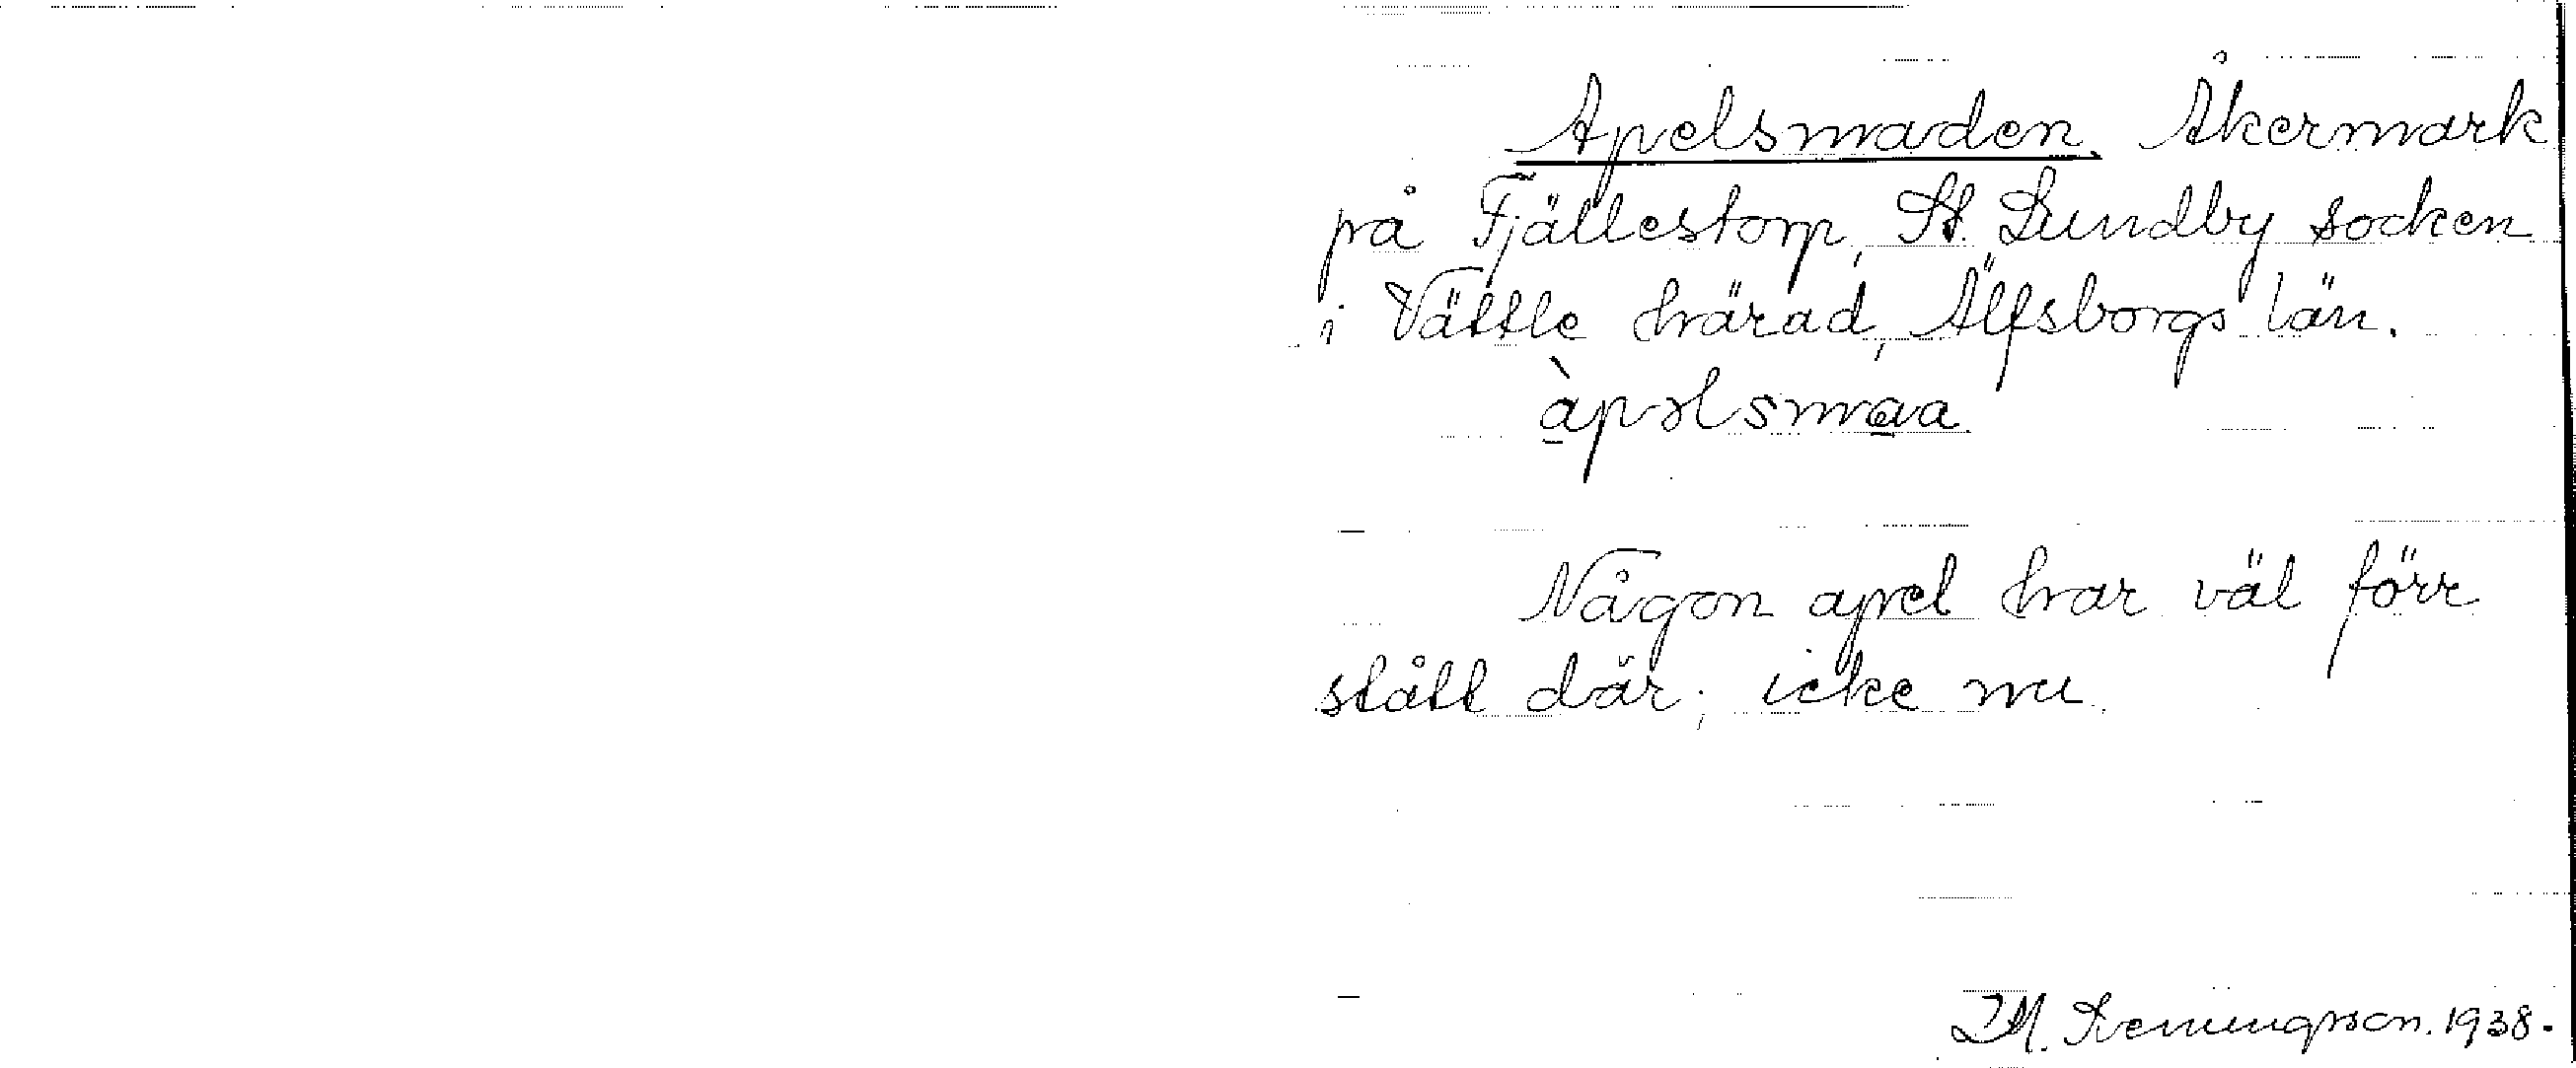 Apelsmaden. Åkermark
på Fjällestorp, St. Lundby socken
i Vättle härad, Älfsborgs län.
àpəlsmaa.
Någon apel har väl förr
stått där; icke nu.
D.M. Svenungsson. 1938.